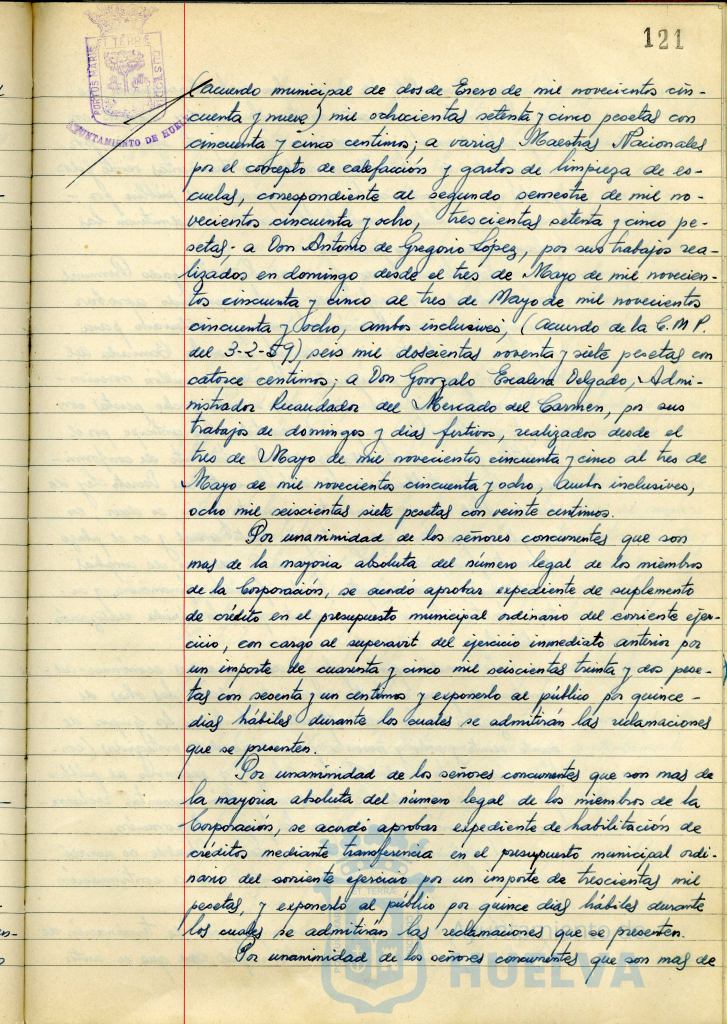 121
PORTUS MARIS ET TERRÆ CUSTODIA
AYUNTAMIENTO DE HUELVA
(acuerdo municipal de dos de Enero de mil novecientos cin-
cuenta y nueve) mil ochocientas setenta y cinco pesetas con
cincuenta y cinco centimos; a varias Maestras Nacionales
por el concepto de calefacción y gastos de limpieza de es-
cuelas, correspondiente al segundo semestre de mil no-
vecientos cincuenta y ocho, trescientas setenta y cinco pe-
setas; a Don Antonio de Gregorio López, por sus trabajos rea-
lizados en domingo desde el tres de Mayo de mil novecien-
tos cincuenta y cinco al tres de Mayo de mil novecientos
cincuenta y ocho, ambos inclusives, (acuerdo de la C.M.P.
del 3-2-59) seis mil doscientas noventa y siete pesetas con
catorce centimos; a Don Gonzalo Escalera Delgado, Admi-
nistrador Recaudador del Mercado del Carmen, por sus
trabajos de domingos y dias festivos, realizados desde el
tres de Mayo de mil novecientos cincuenta y cinco al tres de
Mayo de mil novecientos cincuenta y ocho, ambos inclusives,
ocho mil seiscientas siete pesetas con veinte centimos.
Por unanimidad de los señores concurrentes que son
mas de la mayoria absoluta del número legal de los miembros
de la Corporación, se acordó aprobar expediente de suplemento
de crédito en el presupuesto municipal ordinario del corriente ejer-
cicio, con cargo al superavit del ejercicio inmediato anterior por
un importe de cuarenta y cinco mil seiscientas treinta y dos pese-
tas con sesenta y un centimos y exponerlo al público por quince
dias hábiles durante los cuales se admitirán las reclamaciones
que se presenten.
Por unanimidad de los señores concurrentes que son mas de
la mayoria absoluta del número legal de los miembros de la
Corporación, se acordó aprobar expediente de habilitación de
créditos mediante transferencia en el presupuesto municipal ordi-
nario del corriente ejercicio por un importe de trescientas mil
pesetas, y exponerlo al público por quince dias hábiles durante
los cuales se admitirán las reclamaciones que se presenten.
Por unanimidad de los señores concurrentes que son mas de
HUELVA